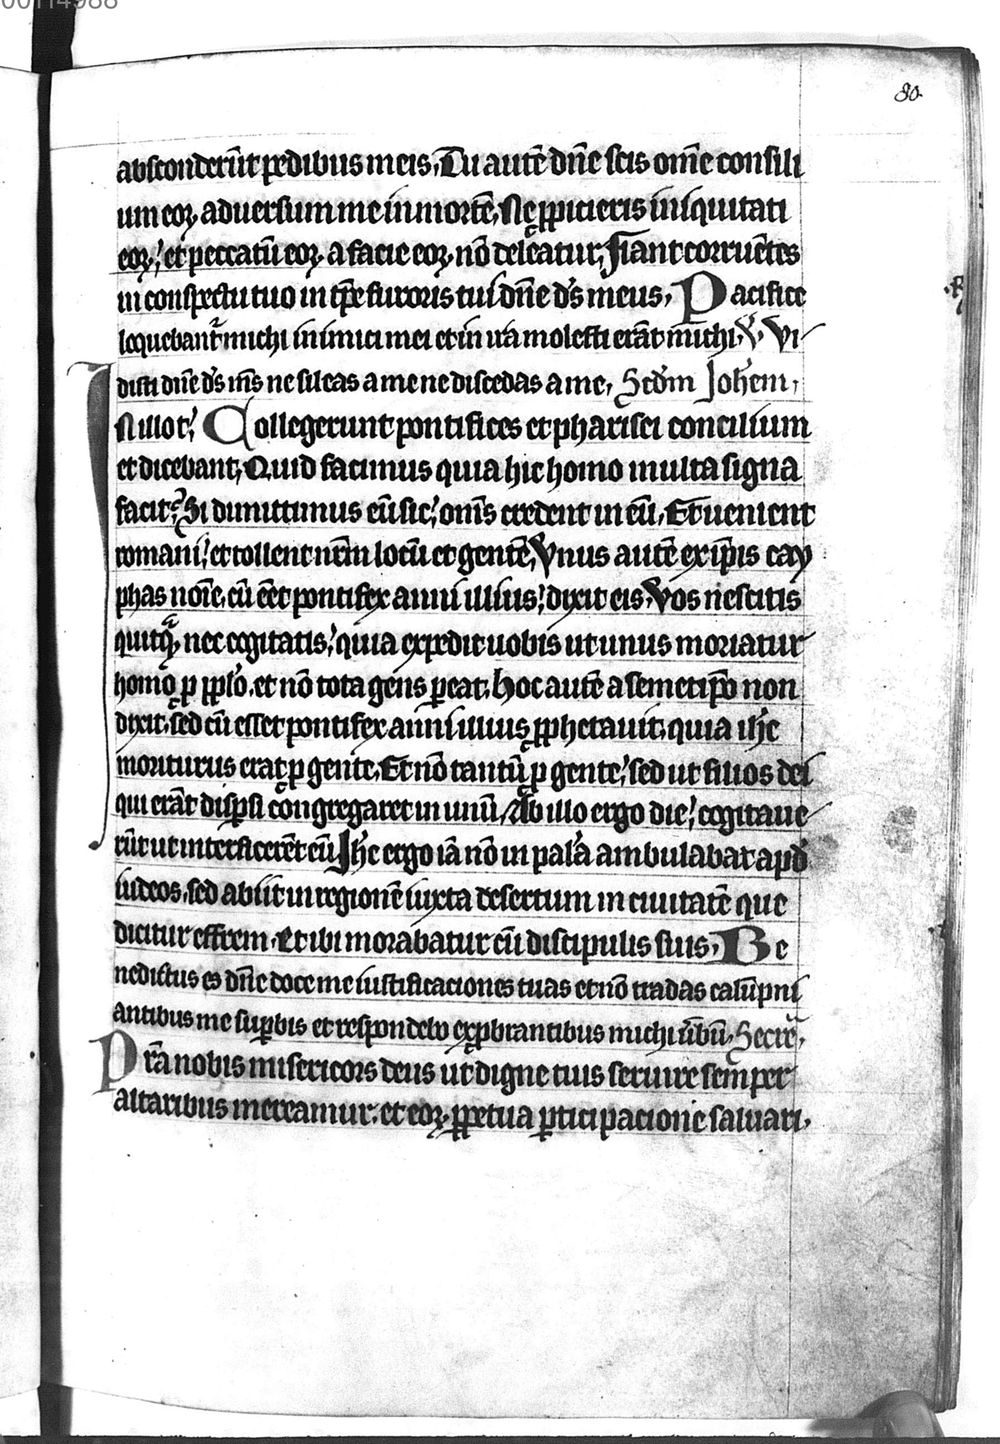 00114988
80.
absconderūt pedibus meis. Tu autē dn̄e scis om̄e consili
um eoꝝ aduersum me in mortē. Ne ꝓpicieris iniquitati
eoꝝ: et peccatū eoꝝ a facie eoꝝ nō deleatur. Fiant corruētes
in conspectu tuo in tp̄e furoris tui dn̄e ds̄ meus. Pacifice
loquebant᷑ michi inimici mei et in ira molesti erāt michi. V. Vi
disti dn̄e ds̄ ms̄ ne sileas a me ne discedas a me. Scdm̄ Joh̄em.
In illo t̄. Collegerunt pontifices et pharisei concilium
et dicebant. Quid facimus quia hic homo multa signa
facit? Si dimittimus eū sic: om̄s credent in eū. Et uenient
romani: et tollent nr̄m locū et gentē. Vnus autē ex ip̄is cay
phas noīe. cū eēt pontifex anni illius: dixit eis. Vos nescitis
quicq̄ᵃ nec cogitatis: quia expedit uobis ut unus moriatur
homo p̱ pplo. et nō tota gens ꝑeat. Hoc autē a semetip̄o non
dixit. sed cū esset pontifex anni illius ꝓphetauit. quia ih̄c
moriturus erat ꝓ gente. Et nō tantū ꝓ gente: sed ut filios dei
qui erāt disꝑsi congregaret in unū. Ab illo ergo die: cogitaue
rūt ut interficerēt eū. Jh̄c ergo iā nō in palā ambulabat apd̄
iudeos. sed abiit in regionē iuxta desertum in ciuitatē que
dicitur effrem. Et ibi morabatur cū discipulis suis. Be
nedictus es dn̄e doce me iustificaciones tuas et nō tradas calūpni
antibus me suꝑbis et respondebo exꝓbrantibus michi ūbū. Secre᷑.
Pr̄a nobis misericors deus ut digne tuis seruire semper
altaribus mereamur: et eoꝝ ꝑpetua ꝑticipacione saluari.